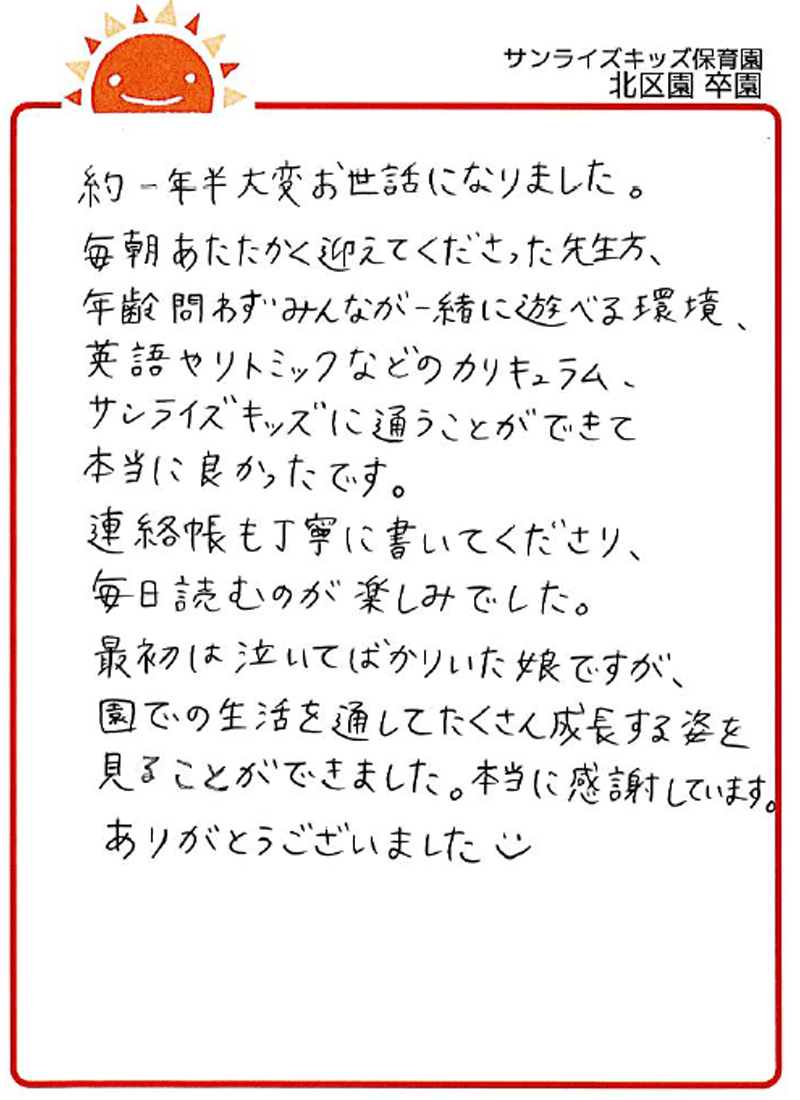 サンライズキッズ保育園
北区園 卒園
約一年半大変お世話になりました。
毎朝あたたかく迎えてくださった先生方、
年齢問わずみんなが一緒に遊べる環境、
英語やリトミックなどのカリキュラム、
サンライズキッズに通うことができて
本当に良かったです。
連絡帳も丁寧に書いてくださり、
毎日読むのが楽しみでした。
最初は泣いてばかりいた娘ですが、
園での生活を通してたくさん成長する姿を
見ることができました。本当に感謝しています。
ありがとうございました